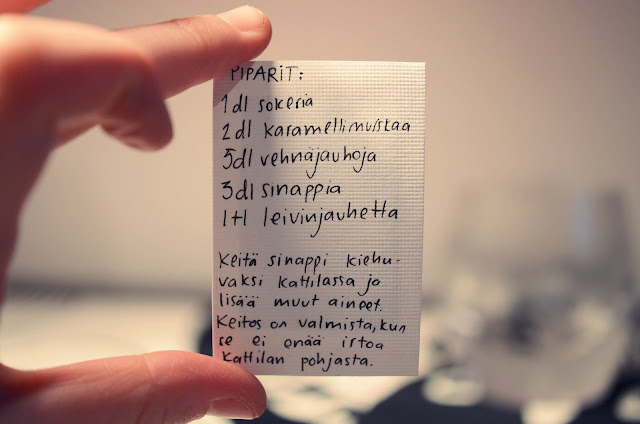 PIPARIT:
1 dl sokeria
2 dl karamellimuskaa
5dl vehnäjauhoja
3dl sinappia
1tl leivinjauhetta
Keitä sinappi kiehu-
vaksi kattilassa ja
lisää muut aineet.
Keitos on valmista, kun
se ei enää irtoa
kattilan pohjasta.